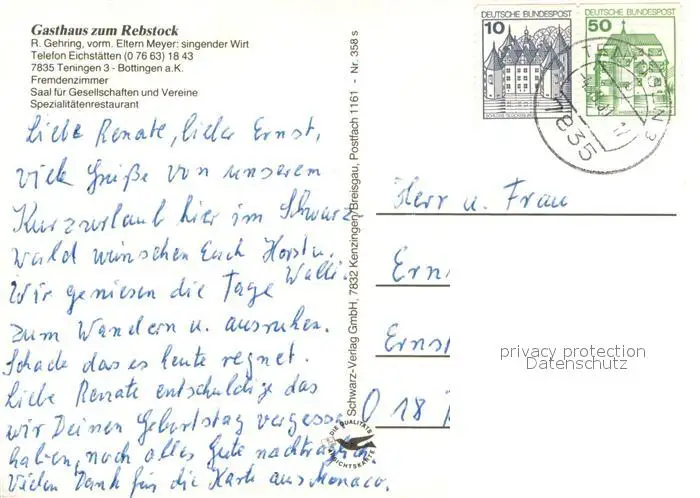 Gasthaus zum Rebstock
R. Gehring, vorm. Eltern Meyer: singender Wirt
Telefon Eichstätten (0 76 63) 18 43
7835 Teningen 3 - Bottingen a.K.
Fremdenzimmer
Saal für Gesellschaften und Vereine
Spezialitätenrestaurant
Liebe Renate, lieber Ernst,
viele Grüße von unserem
Kurzurlaub hier im Schwarz
wald wünschen Euch Horst u.
Walli.
Wir geniesen die Tage
zum Wandern u. ausruhen.
Schade das es heute regnet.
Liebe Renate entschuldige das
wir Deinen Geburtstag vergessen
haben, noch alles Gute nachträglich
Vielen Dank für die Karte aus Monaco.
Schwarz-Verlag GmbH, 7832 Kenzingen/Breisgau, Postfach 1161 - Nr. 358 s
DIE QUALITÄTS
ANSICHTSKARTE
10 DEUTSCHE BUNDESPOST
SCHLOSS GLÜCKSBURG
50 DEUTSCHE BUNDESPOST
TENINGEN 3
7835
Herr u. Frau
Ern
Ernst
D 18
privacy protection
Datenschutz